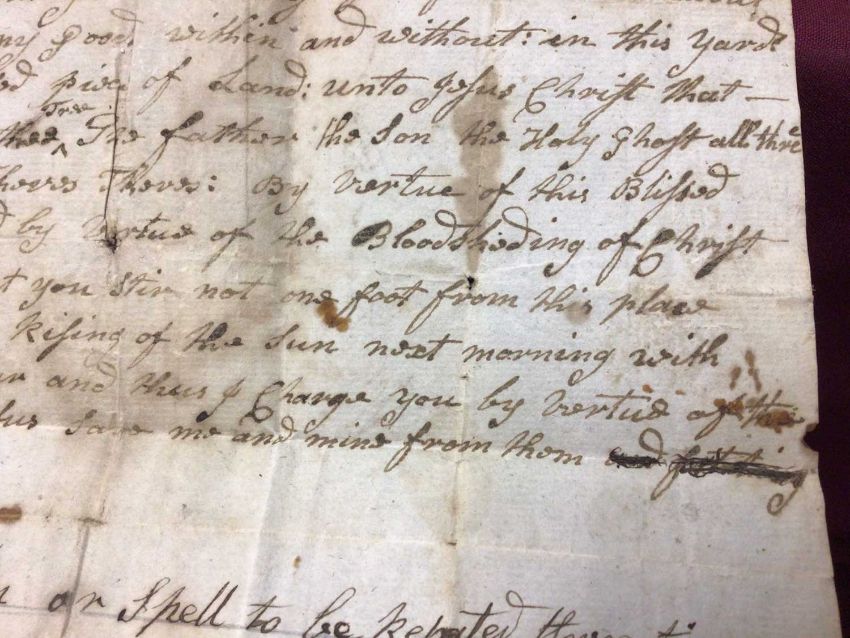 my good within and without: in this yard
piece of Land: unto Jesus Christ that —
Tree
thee ^ The father the Son the Holy Ghost all three
Theves Theves: By vertue of this Blissed
by vertue of the Bloodsheding of Christ
you Stir not one foot from this place
Rising of the Sun next morning with
and thus I Charge you by vertue of the
save me and mine from them and
or Spell to be Repated three